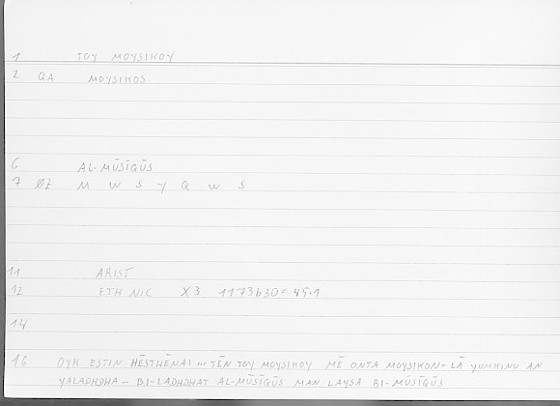 1 TOY MOYSIKOY
2 QA MOYSIKOS
6 AL-MŪSĪQŪS
7 ØZ M W S Y Q W S
11 ARIST
12 ETH NIC X3 1173b30 = 45.1
14
16 OYK ESTIN HĒSTHĒNAI ... TĒN TOY MOYSIKOY MĒ ONTA MOYSIKON - LĀ YUMKINU AN
YALADHDHA - BI-LADHDHAT AL-MŪSĪQŪS MAN LAYSA BI-MŪSĪQŪS